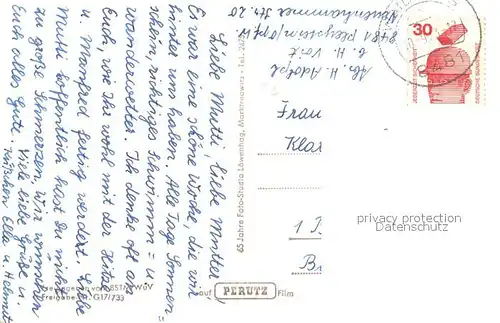 Liebe Mutti, liebe Mutter,
Es war eine schöne Woche, die wir
hinter uns haben. Alle Tage Sonnen
schein, richtiges Schwimm- u.
wanderwetter. Ich denke oft an
Euch, wie Ihr wohl mit der Hitze
u. Manfred fertig werdet. Liebe
Mutti hoffentlich hast Du nicht
zu große Schmerzen. Wir wünschen
Euch alles Gute. Viele liebe Grüße u.
Küßchen Ella u. Helmut
Abs. H. Adolph
b. H. Voit
8481 Pleystein/Opf.
Str. 20
65 Jahre Foto-Studio Löwenhag, Marktredwitz - Tel.
Frau
Klar
1
B
30
DEUTSCHE BUNDESPOST
8481
privacy protection
www.ansichtskartenversand.com
Freigabe Nr. G17/733
auf PERUTZ Film